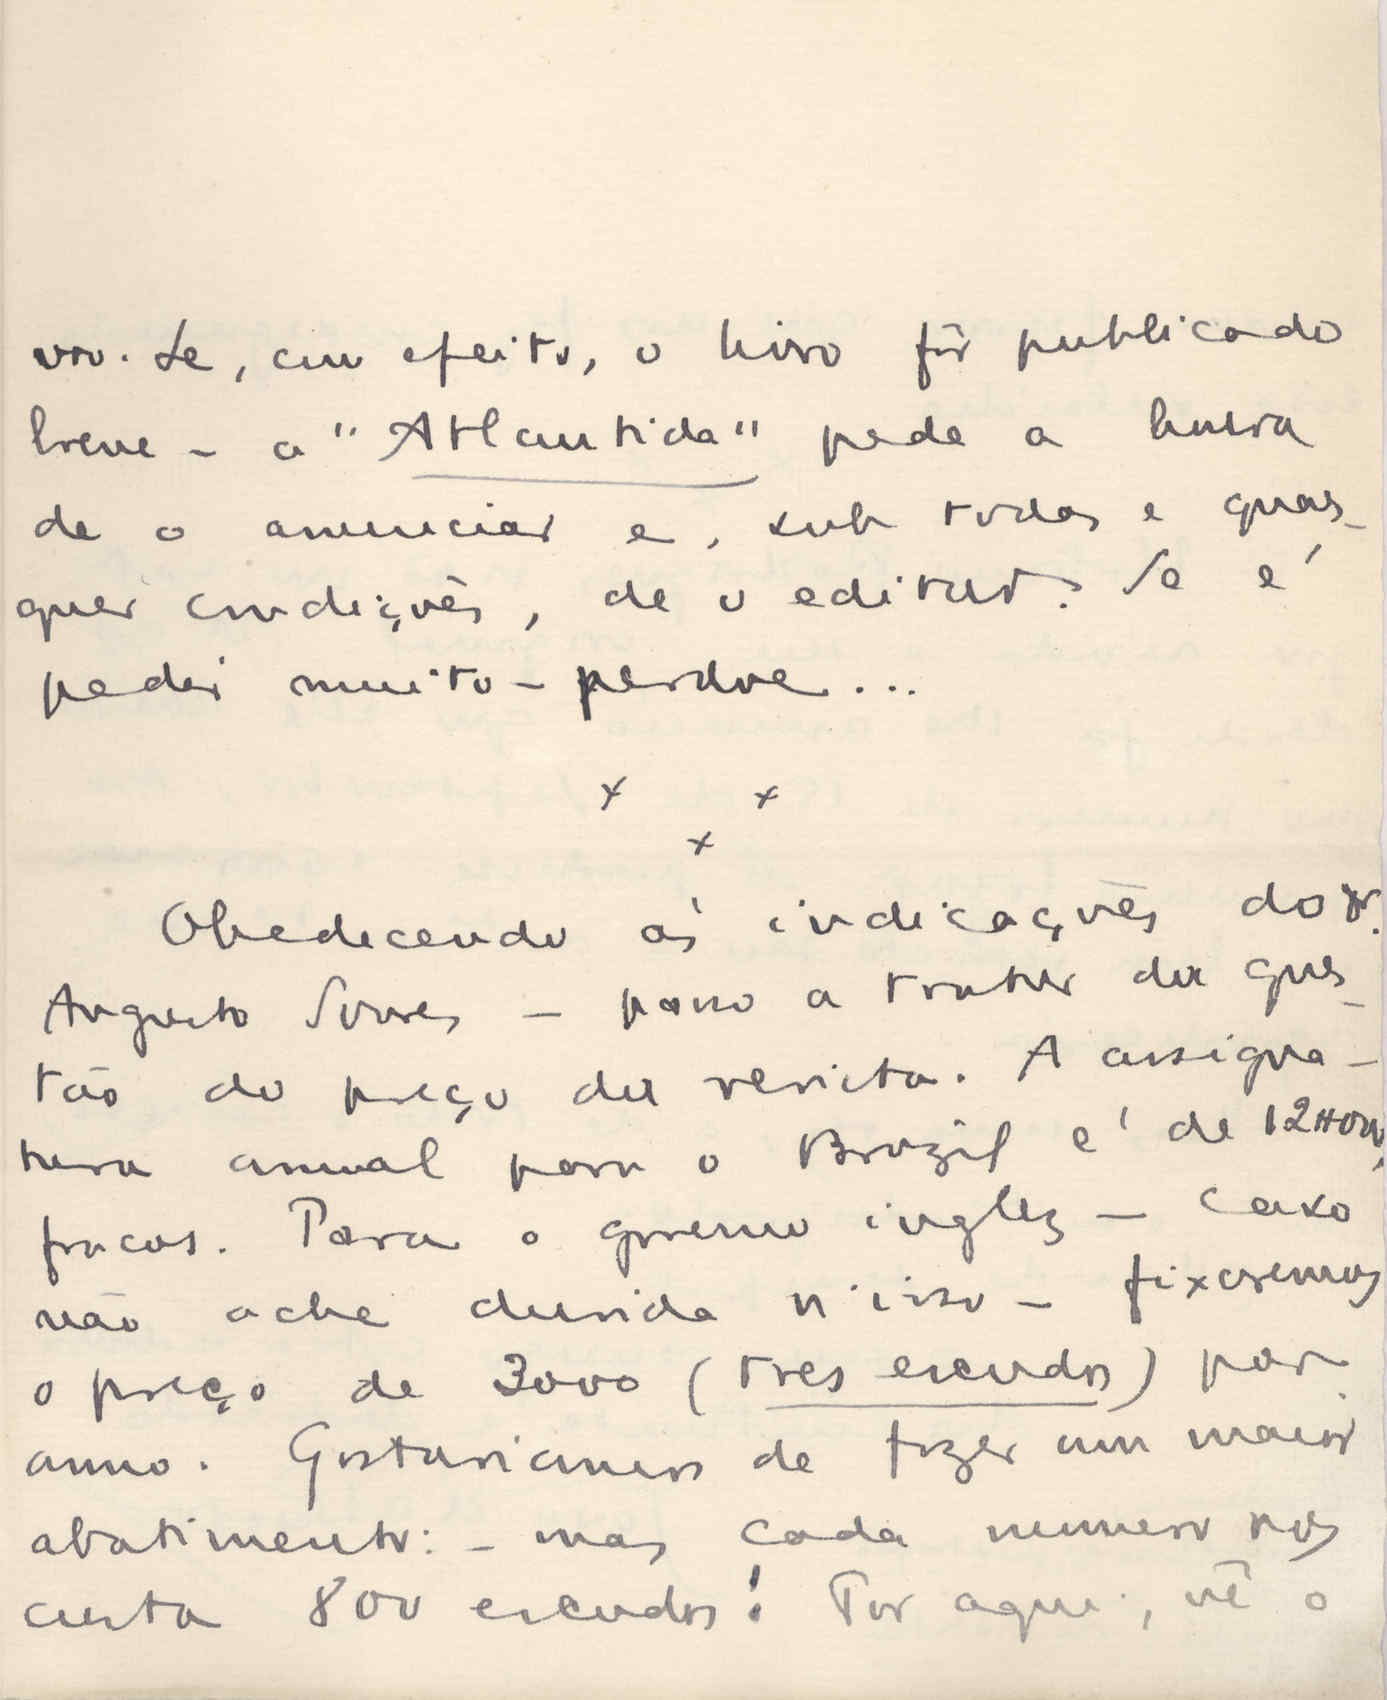 vro. Se, em efeito, o livro fôr publicado
breve - a "Atlantida" pede a honra
de o anunciar e, sob todas e quaes-
quer condições, de o editar. Se é
pedir muito - perdoe...
x x
x
Obedecendo ás indicações do Dr.
Augusto Soares - passo a tratar da ques-
tão do preço da revista. A assigna-
tura annual para o Brazil é de 12$000,
fracos. Para o governo inglez - caso
não ache duvida n'isso - fixaremos
o preço de 3000 (tres escudos) por
anno. Gostariamos de fazer um maior
abatimento: - mas cada numero nos
custa 800 escudos! Por aqui, vê o